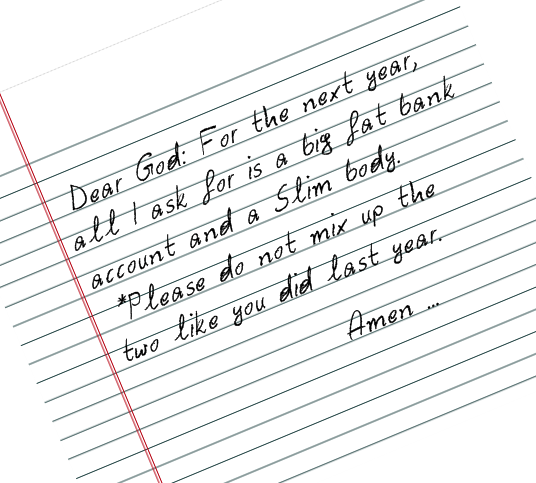 Dear God: For the next year,
all I ask for is a big fat bank
account and a Slim body.
*Please do not mix up the
two like you did last year.
Amen ...